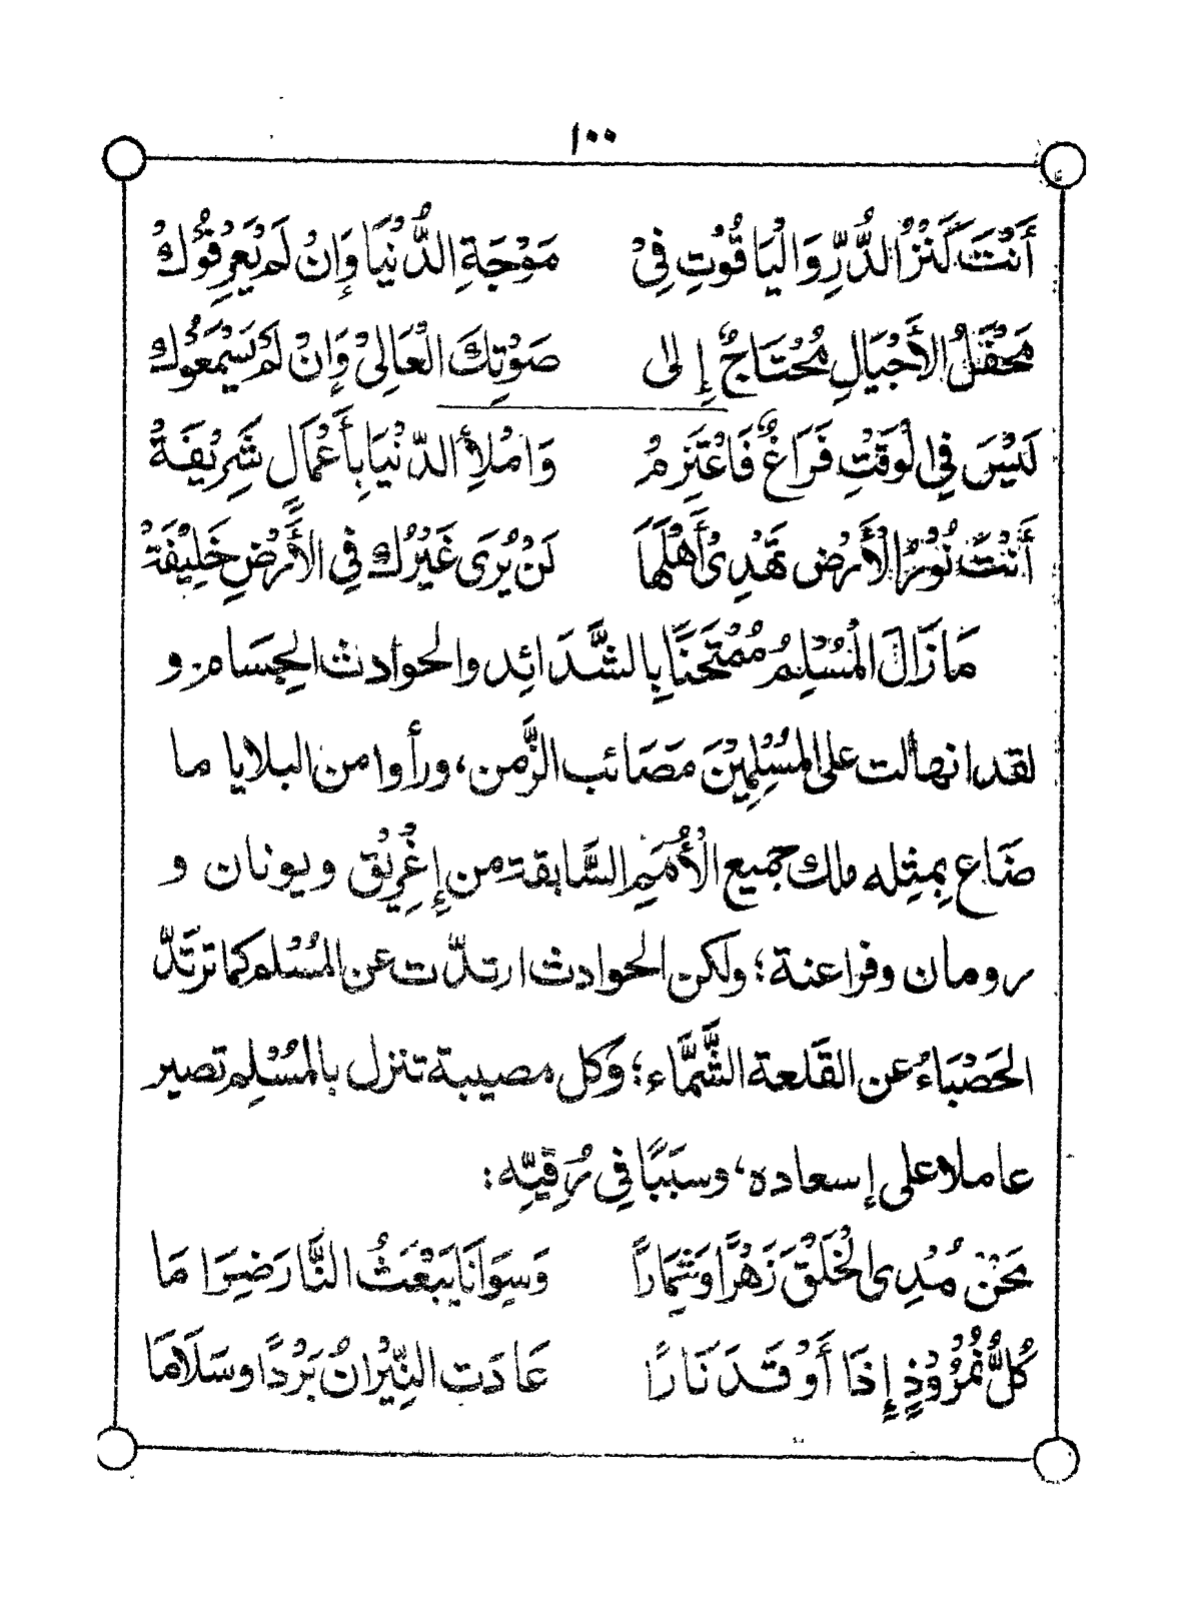 ١٠٠
أَنْتَ كَنْزُ الدُّرِّ وَالْيَاقُوْتِ فِيْ مَوْجَةِ الدُّنْيَا وَإِنْ لَمْ يَعْرِفُوْكْ
مَحْفَلُ الأَجْيَالِ مُحْتَاجٌ إِلى صَوْتِكَ الْعَالِيْ وَإِنْ لَمْ يَسْمَعُوْكْ
لَيْسَ فِي الْوَقْتِ فَرَاغٌ فَاعْتَزِمْ وَامْلأِ الدُّنْيَا بِأَعْمَالٍ شَرِيْفَةْ
أَنْتَ نُوْرُ الْأَرْضِ تَهْدِىْ أَهْلَهَا لَنْ يُرَى غَيْرُكَ فِي الأَرْضِ خَلِيْفَةْ
مَا زَالَ الْمُسْلِمُ مُمْتَحَنًا بِالشَّدَائِدِ والحوادث الجِسَامِ و
لقد انهالت على المُسْلِمِيْنَ مَصَائب الزَّمن، ورأوا من البلايا ما
ضَاع بِمِثِله ملك جميع الْأُمَمِ السَّابقة من إِغْرِيْق ويونان و
رومان وفراعنة؛ ولكن الحوادث ارتدّت عن المُسْلم كما ترتَدّ
الحَصْبَاءُ عن القَلعة الشَّمَّاء؛ وَكل مصيبة تنزل بالمُسْلِم تصير
عاملا على إسعاده، وسبَبًا فِي رُقِيِّه:
نَحْنُ مُدِى الْخَلْقَ زَهْرًا وَثِمَاراً وَسِوَانَا يَبْعَثُ النَّارَ ضِرَا مَا
كُلُّ نُمْرُوْذٍ إِذَا أَوْقَدَ نَارًا عَادَتِ النِّيْرَانُ بَرْدًا وسَلَامَا